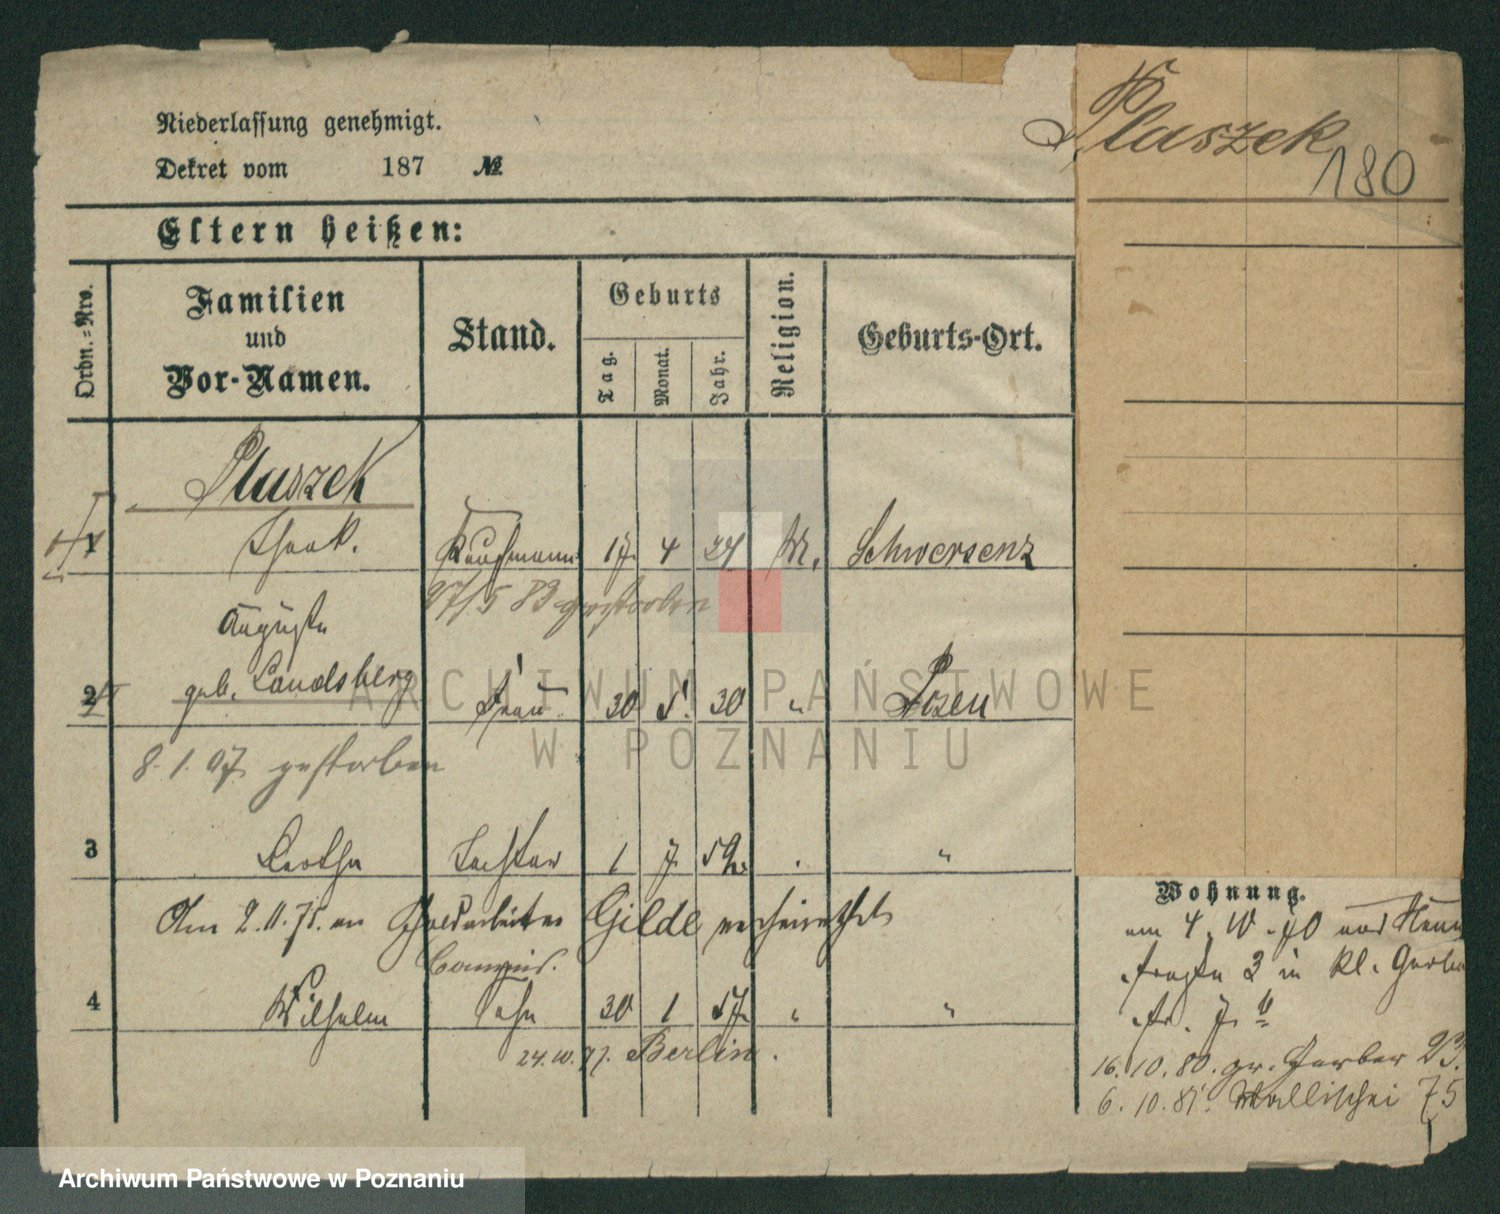 Niederlassung genehmigt.
Dekret vom 187 №
Plaszek
180
Eltern heißen:
Ordn.=Nro.
Familien
und
Vor-Namen.
Stand.
Geburts
Tag.
Monat.
Jahr.
Religion.
Geburts-Ort.
Plaszek
1 Kaufmann 17. 4 24 Schwersenz
27/5 83 gestorben
Auguste
2 geb. Landsberg Frau 30 5. 30 " Posen
8. 1. 07 gestorben
3 Tochter 1 7. "
Am 2.11.75. an Goldarbeiter Gilde verheirathet
Commis.
4 Wilhelm Sohn 30 1 57. " "
24.10.77. Berlin.
Wohnung.
am 4. 10. 70
straße 3 in kl. Gerber
str. 7.
16.10.80. gr. Gerber 23.
6.10.81. Wallischei 75
ARCHIWUM PAŃSTWOWE
W POZNANIU
Archiwum Państwowe w Poznaniu